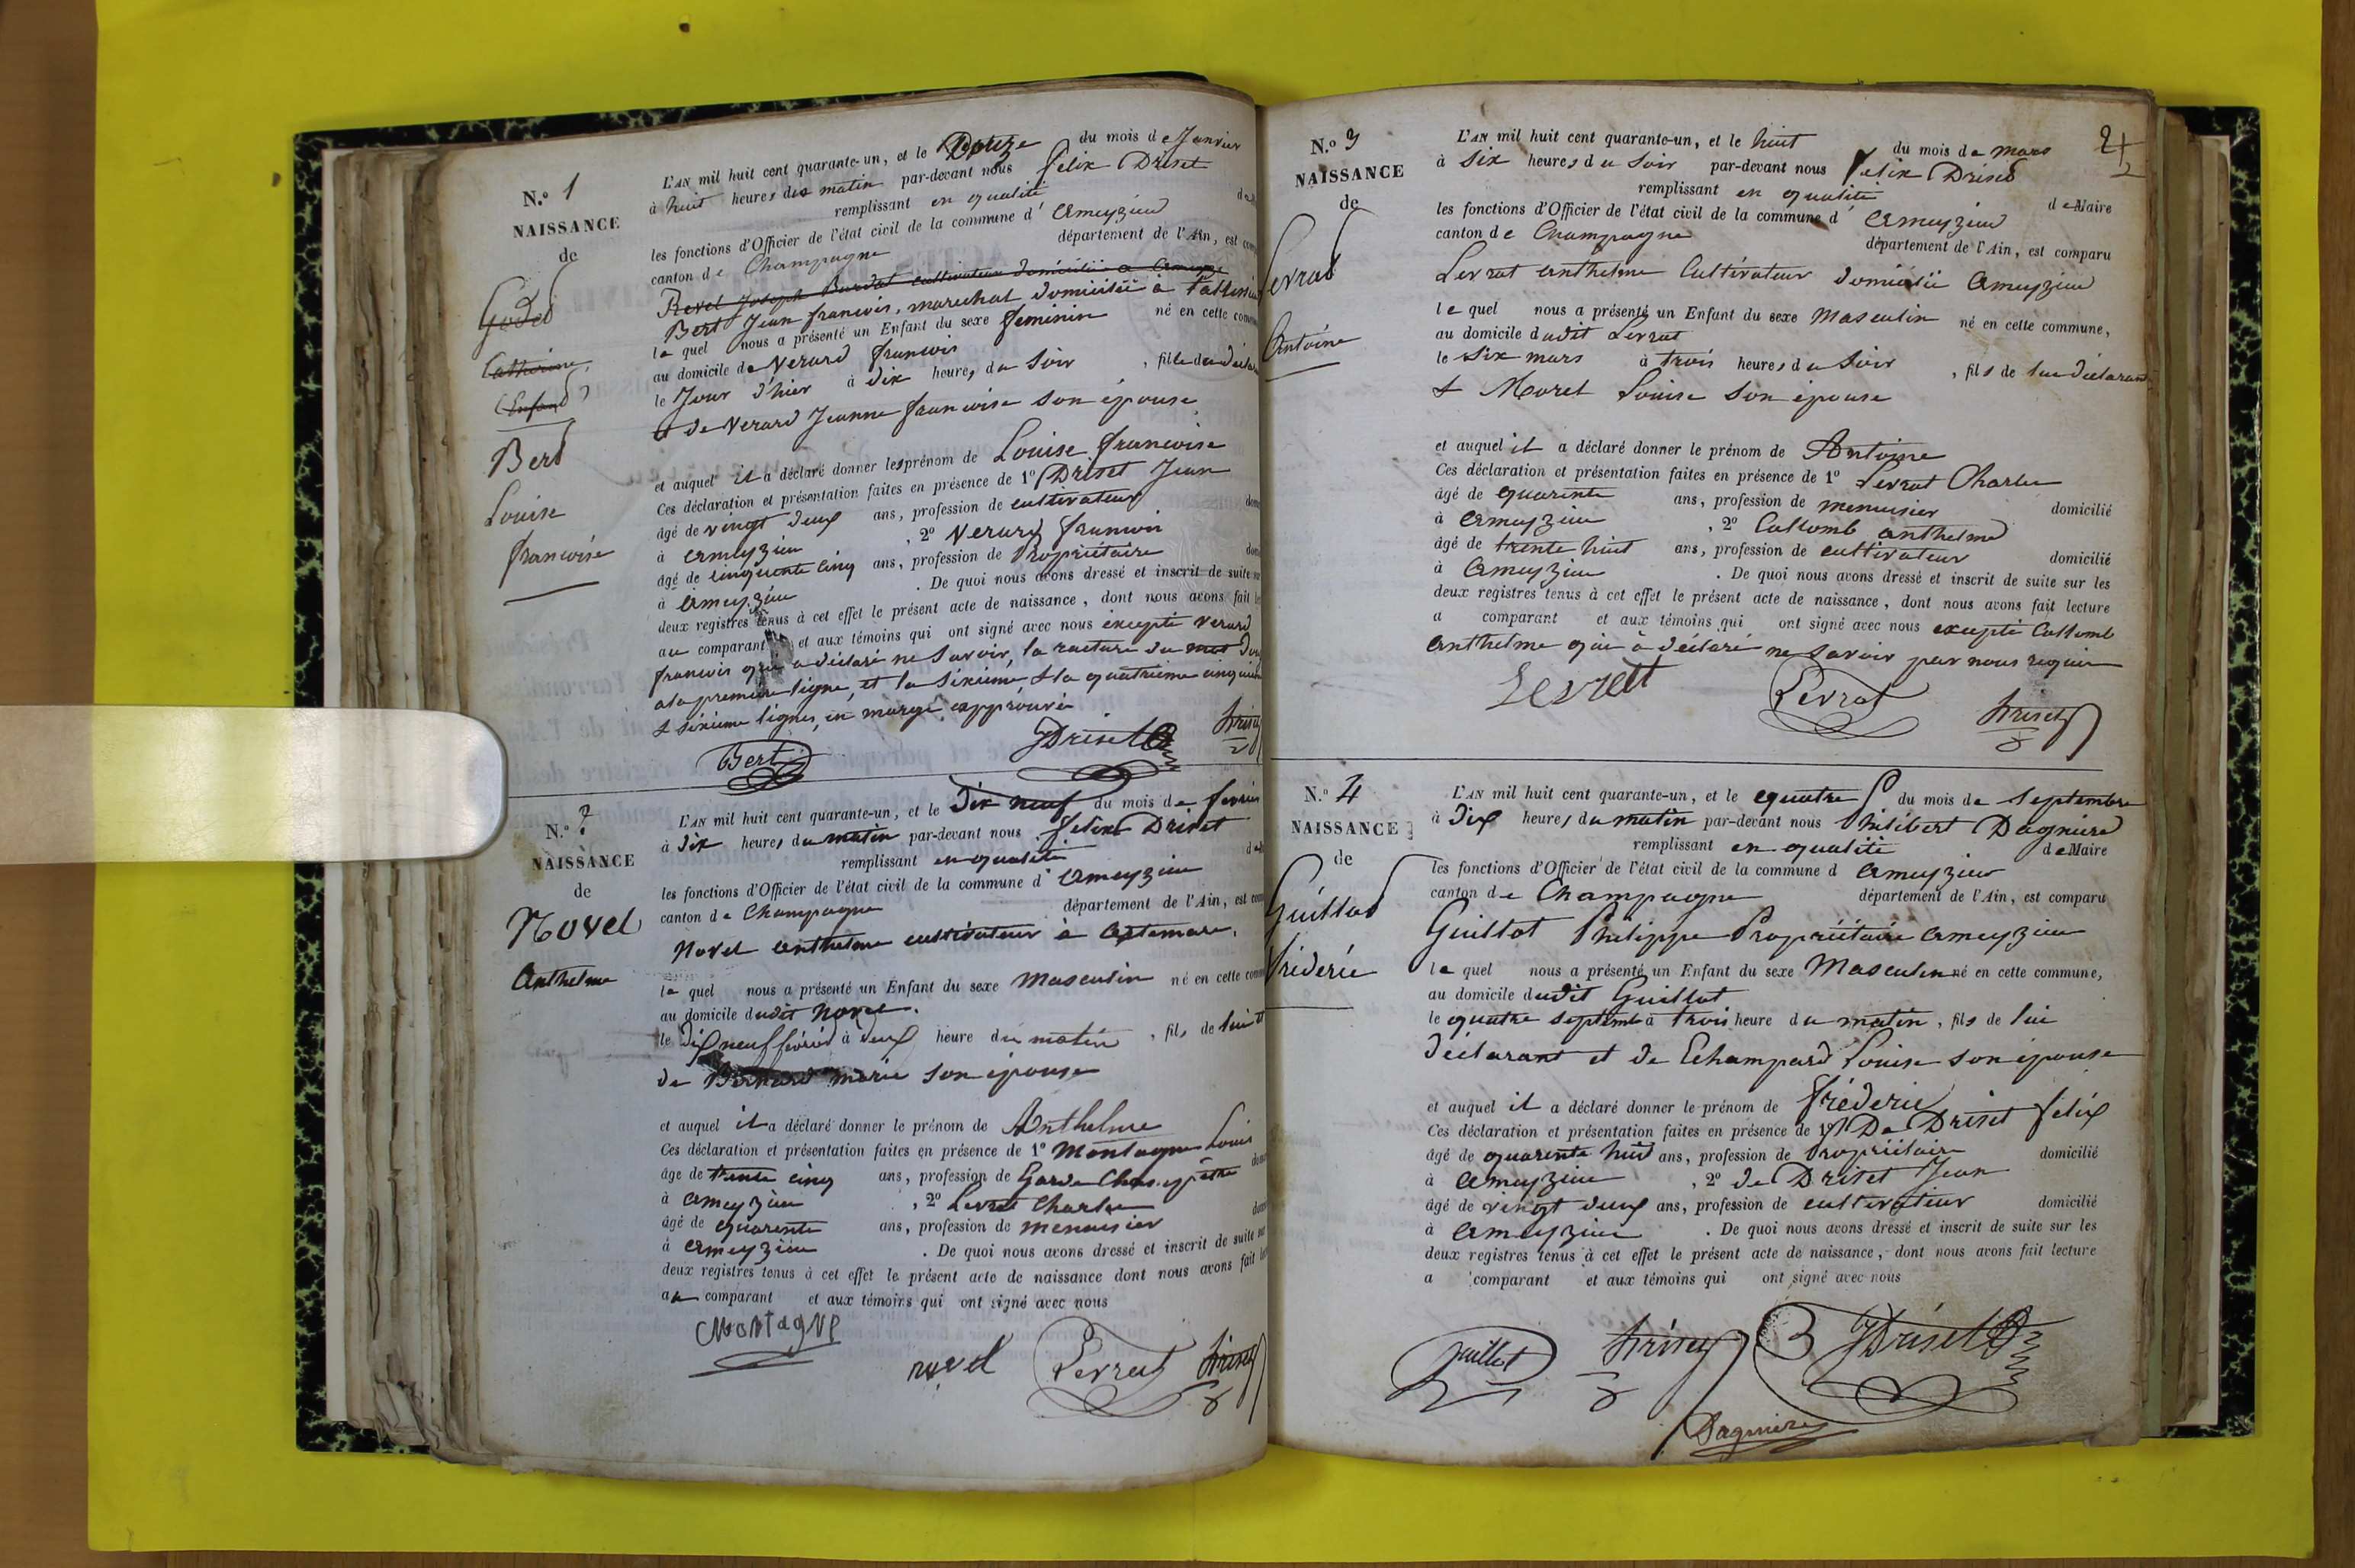 N.º 1
NAISSANCE
de
Godet
Catherine
(Enfant)
Bert
Louise
francoise
L'AN mil huit cent quarante-un, et le Douze du mois de Janvier
à huit heures du matin par-devant nous felix Driset
remplissant en qualité de
les fonctions d'Officier de l'état civil de la commune d' ameyzieu
canton de Champagne département de l'Ain, est
Revel Joseph Burdet cultivateur domicilié a
Bert Jean francois, marechal domicilié à
le quel nous a présenté un Enfant du sexe feminin né en cette
au domicile de Verard francois
le Jour d'hier à dix heures du Soir , fille du
et de Verard Jeanne francoise son épouse
et auquel il a déclaré donner les prénom de Louise francoise
Ces déclaration et présentation faites en présence de 1º Driset Jean
âgé de vingt deux ans, profession de cultivateur
à ameyzieu , 2º Verard francois
âgé de cinquante cinq ans, profession de Propriétaire
à ameyzieu . De quoi nous avons dressé et inscrit de suite
deux registres tenus à cet effet le présent acte de naissance, dont nous avons fait
au comparant et aux témoins qui ont signé avec nous excepté Verard
francois qui a déclaré ne Savoir, la rature du mot
a la premiere ligne, et la Sixieme & la quatrieme cinquieme
& sixieme lignes en marge approuvée
Bert
JDriset
Driset
N.º 2
NAISSANCE
de
Novel
Anthelme
L'AN mil huit cent quarante-un, et le Dix neuf du mois de fevrier
à dix heures du matin par-devant nous felix Driset
remplissant en qualité
les fonctions d'Officier de l'état civil de la commune d' ameyzieu
canton de Champagne département de l'Ain, est
Novel anthelme cultivateur à
le quel nous a présenté un Enfant du sexe Masculin né en cette
au domicile dudit Novel.
le Dix neuf février à deux heure du matin , fils de lui et
de Bernard marie son épouse
et auquel il a déclaré donner le prénom de Anthelme
Ces déclaration et présentation faites en présence de 1º Montagne Louis
âgé de trente cinq ans, profession de Garde Champêtre
à ameyzieu , 2º Levrat Charles
âgé de quarente ans, profession de menuisier
à ameyzieu . De quoi nous avons dressé et inscrit de suite sur
deux registres tenus à cet effet le présent acte de naissance dont nous avons fait
au comparant et aux témoins qui ont signé avec nous
Montagne
novel
Levrat
Driset
21
2
N.º 3
NAISSANCE
de
Levrat
Antoine
L'AN mil huit cent quarante-un, et le huit du mois de mars
à six heures du Soir par-devant nous felix Driset
remplissant en qualité de Maire
les fonctions d'Officier de l'état civil de la commune d' ameyzieu
canton de Champagne département de l'Ain, est comparu
Levrat anthelme Cultivateur domicilié ameyzieu
le quel nous a présenté un Enfant du sexe Masculin né en cette commune,
au domicile dudit Levrat
le Six mars à trois heures du Soir , fils de lui déclarant
& Moret Louise son épouse
et auquel il a déclaré donner le prénom de Antoine
Ces déclaration et présentation faites en présence de 1º Levrat Charles
âgé de quarente ans, profession de menuisier domicilié
à ameyzieu , 2º Collomb anthelme
âgé de trente huit ans, profession de cultivateur domicilié
à ameyzieu . De quoi nous avons dressé et inscrit de suite sur les
deux registres tenus à cet effet le présent acte de naissance, dont nous avons fait lecture
a comparant et aux témoins qui ont signé avec nous excepté Collomb
anthelme qui à déclaré ne savoir par nous requis
Levrat
Levrat
Driset
N.º 4
NAISSANCE
de
Guillot
Fréderic
L'AN mil huit cent quarante-un, et le quatre du mois de Septembre
à Dix heures du matin par-devant nous Philibert Dagnierd
remplissant en qualité de Maire
les fonctions d'Officier de l'état civil de la commune d ameyzieu
canton de Champagne département de l'Ain, est comparu
Guillot Philippe Propriétaire ameyzieu
le quel nous a présenté un Enfant du sexe Masculin né en cette commune,
au domicile dudit Guillot
le quatre septembre à trois heure du matin , fils de lui
déclarant et de Echampard Louise son épouse
et auquel il a déclaré donner le prénom de fréderic
Ces déclaration et présentation faites en présence de 1º De Driset felix
âgé de quarente huit ans, profession de Propriétaire domicilié
à ameyzieu , 2º de Driset Jean
âgé de vingt deux ans, profession de cultivateur domicilié
à ameyzieu . De quoi nous avons dressé et inscrit de suite sur les
deux registres tenus à cet effet le présent acte de naissance, dont nous avons fait lecture
a comparant et aux témoins qui ont signé avec nous
guillot
Driset
JDriset
Dagnier